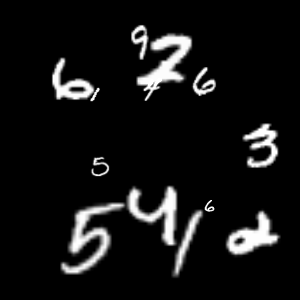 9 2
6 1 4 6
3
5
5 4 1 6 2